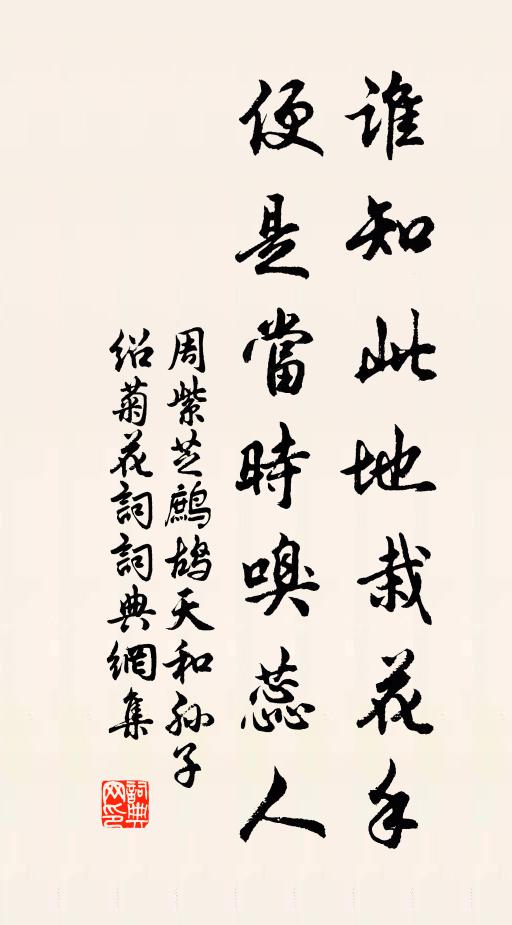 誰知此地栽花手
便是當時嗅蕊人
周紫芝鷓鴣天和孫子
紹菊花詞詞典網集
詞典网印